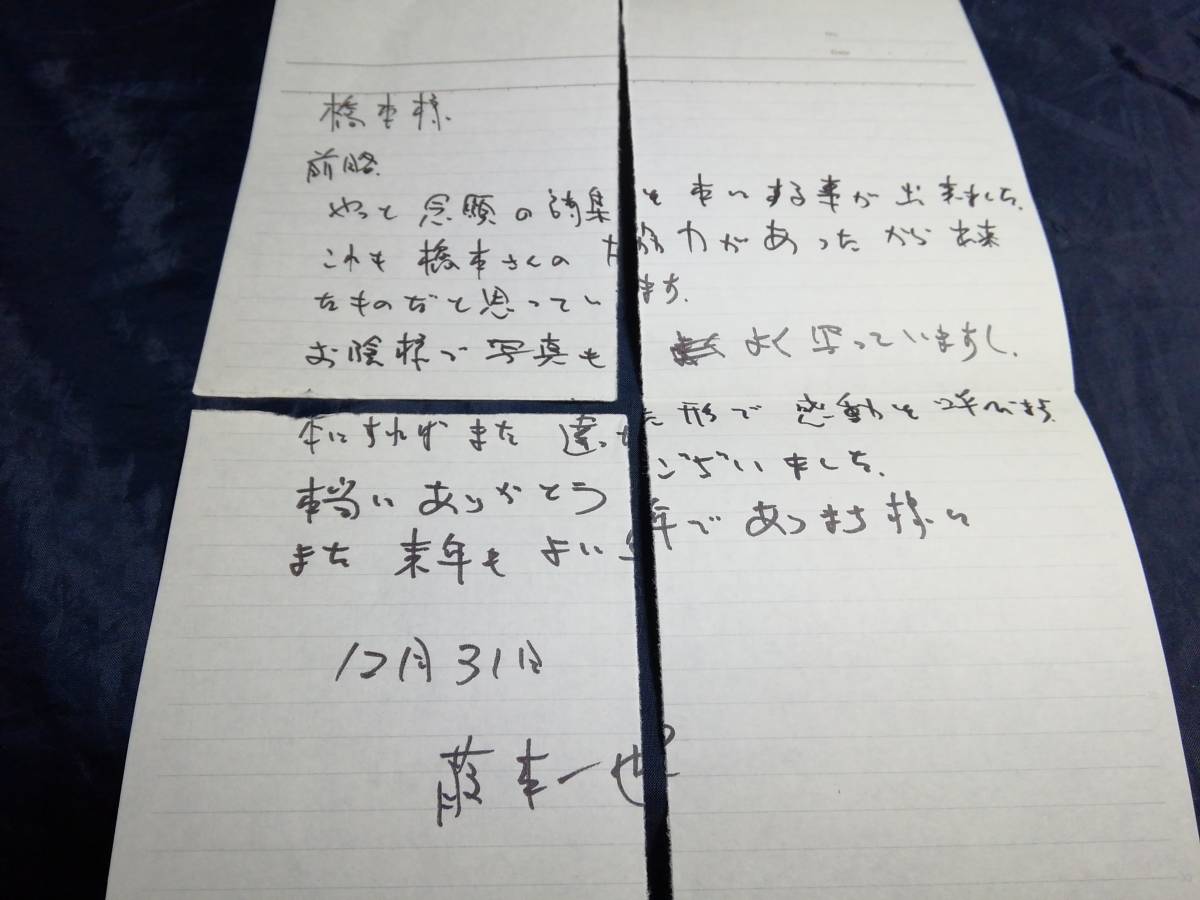 橋本様
前略
やっと念願の詩集を本にする事が出来ました。
これも橋本さんの御力があったから出来
たものだと思っています。
お陰様で写真もよく写っていますし、
本にすればまた違った形で感動を呼びます
本当にありがとうございました。
また来年もよい年であります様に
12月31日
藤本一也